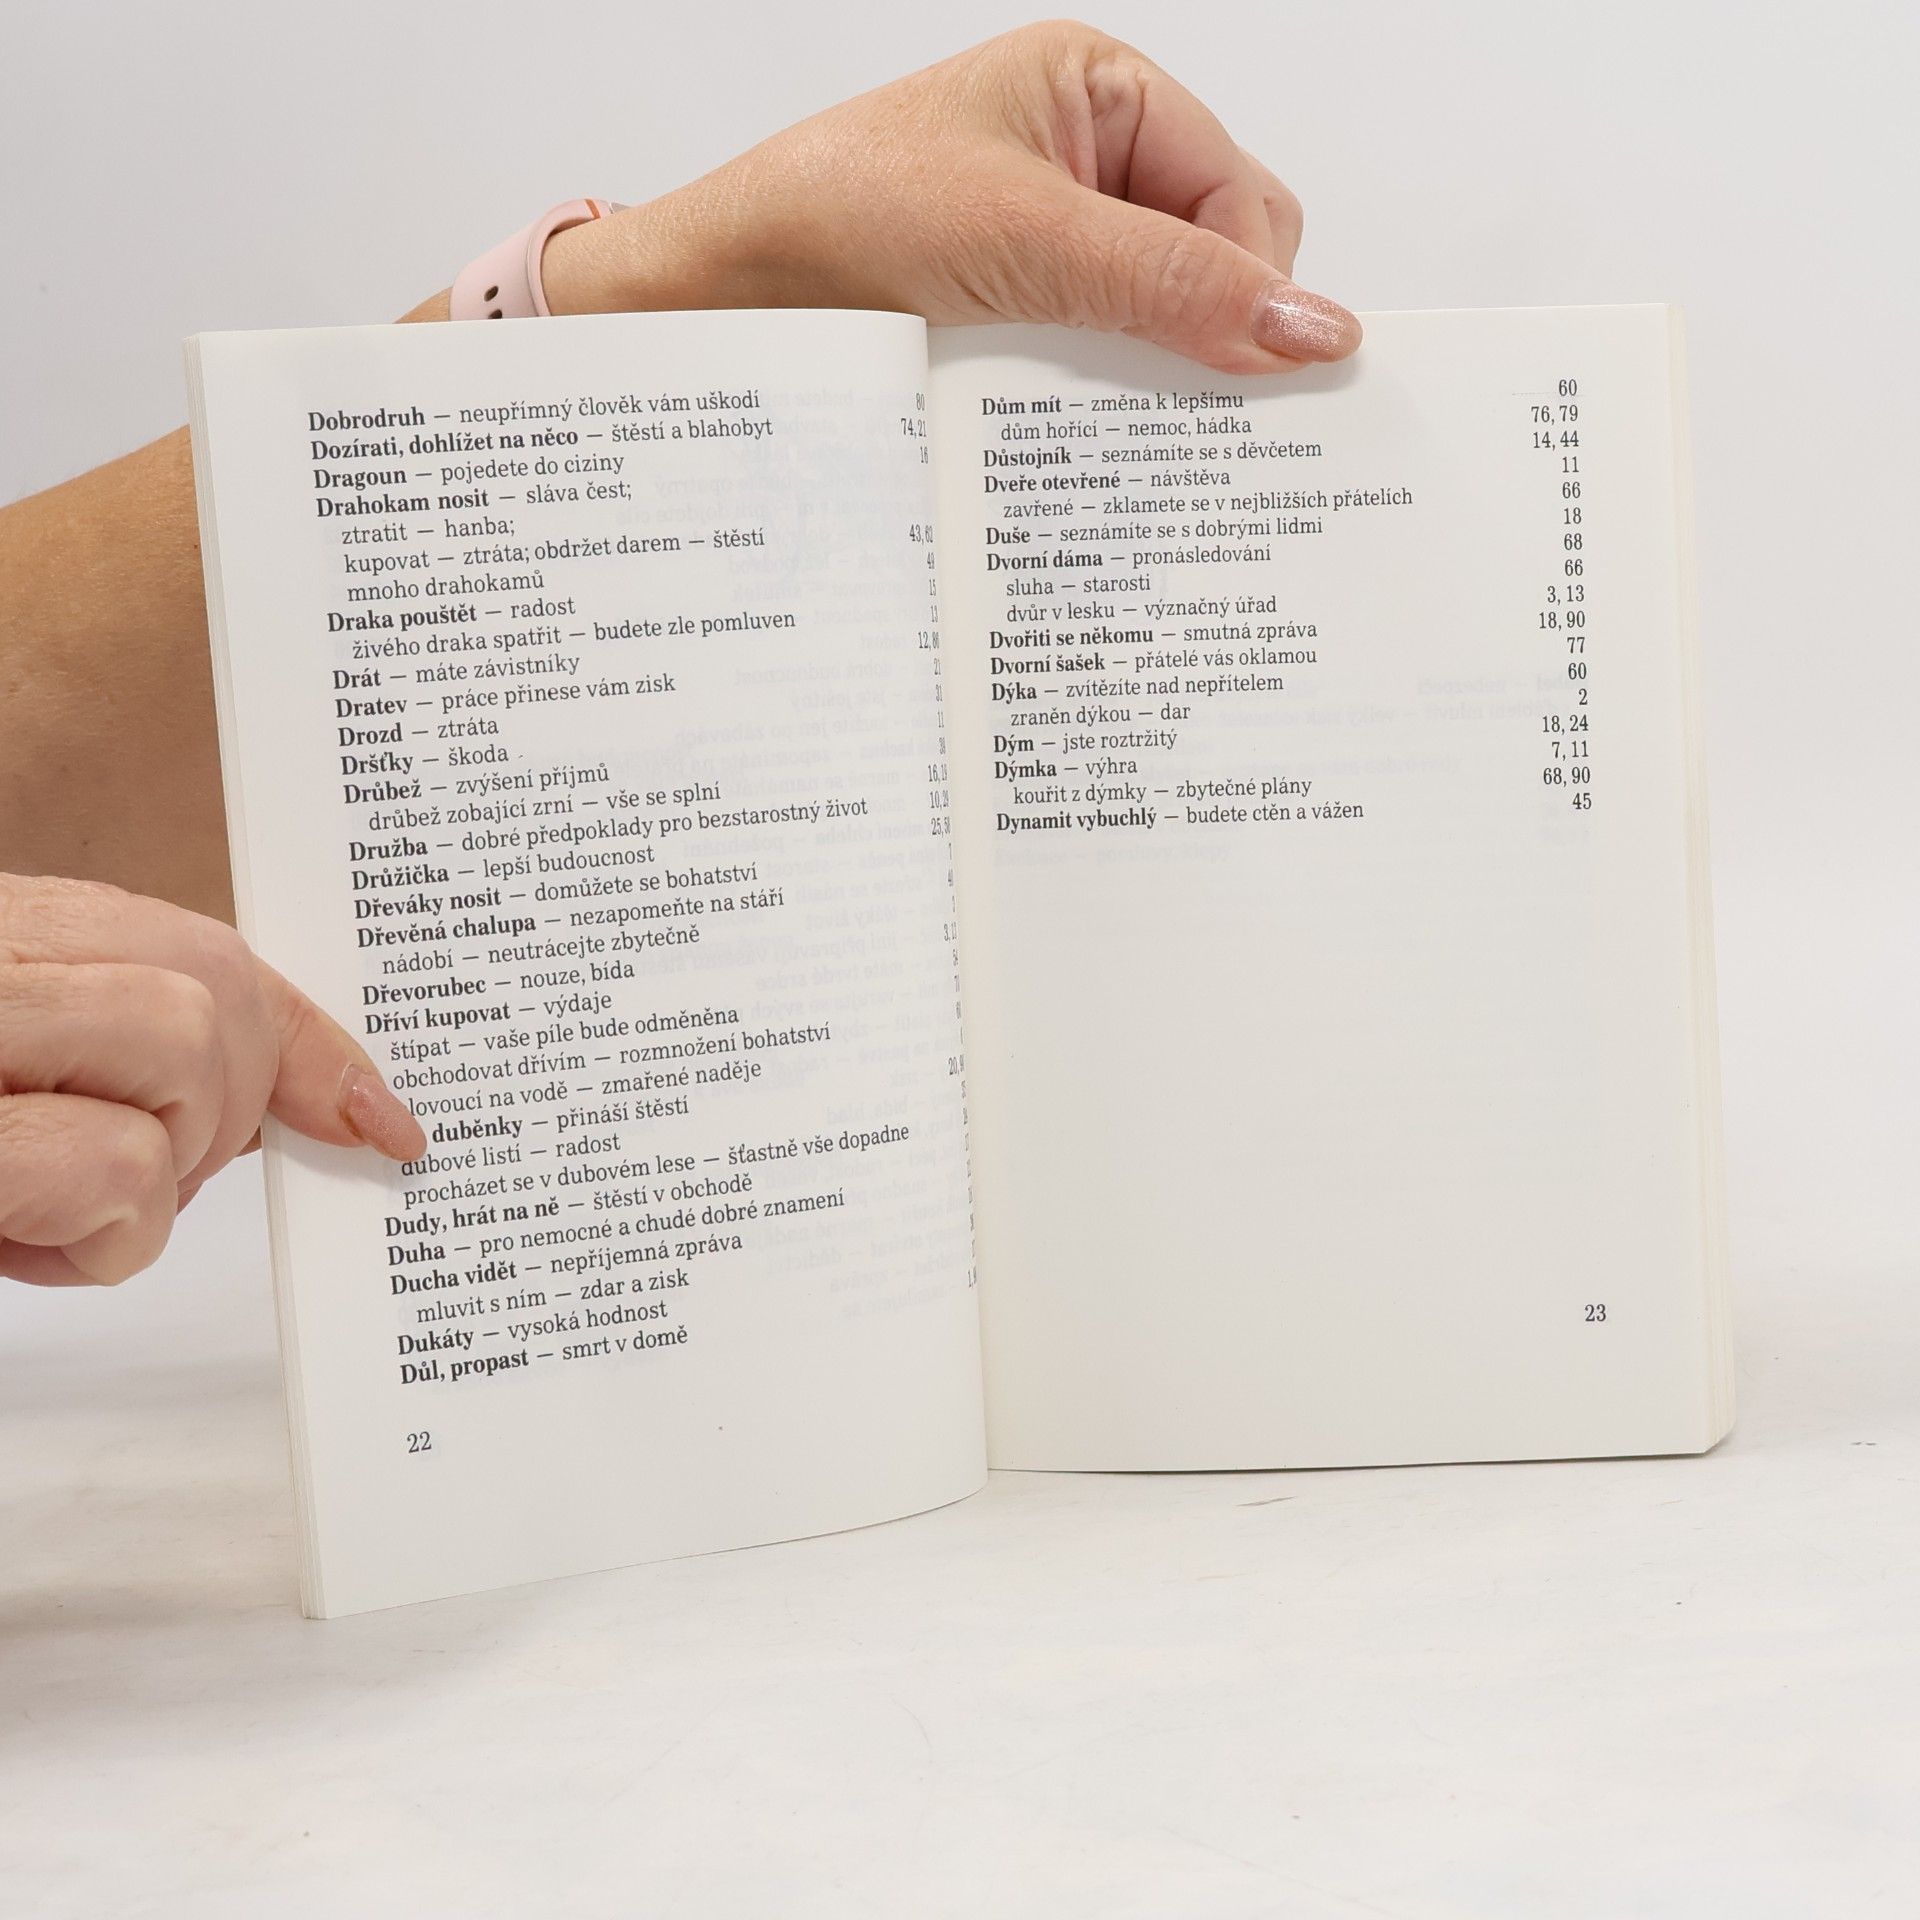 Dobrodruh — neupřímný člověk vám uškodí 80
Dozírati, dohlížet na něco — štěstí a blahobyt 74, 21
Dragoun — pojedete do ciziny 16
Drahokam nosit — sláva čest;
ztratit — hanba;
kupovat — ztráta; obdržet darem — štěstí
mnoho drahokamů
Draka pouštět — radost
živého draka spatřit — budete zle pomluven
Drát — máte závistníky
Dratev — práce přinese vám zisk
Drozd — ztráta
Dršťky — škoda
Drůbež — zvýšení příjmů
drůbež zobající zrní — vše se splní
Družba — dobré předpoklady pro bezstarostný život
Družička — lepší budoucnost
Dřeváky nosit — domůžete se bohatství
Dřevěná chalupa — nezapomeňte na stáří
nádobí — neutrácejte zbytečně
Dřevorubec — nouze, bída
Dříví kupovat — výdaje
štípat — vaše píle bude odměněna
obchodovat dřívím — rozmnožení bohatství
na vodě — zmařené naděje
duběnky — přináší štěstí
dubové listí — radost
procházet se v dubovém lese — šťastně vše dopadne
Dudy, hrát na ně — štěstí v obchodě
Duha — pro nemocné a chudé dobré znamení
Ducha vidět — nepříjemná zpráva
mluvit s ním — zdar a zisk
Dukáty — vysoká hodnost
Důl, propast — smrt v domě
22
Dům mít — změna k lepšímu 60
dům hořící — nemoc, hádka 76, 79
Důstojník — seznámíte se s děvčetem 14, 44
Dveře otevřené — návštěva 11
zavřené — zklamete se v nejbližších přátelích 66
Duše — seznámíte se s dobrými lidmi 18
Dvorní dáma — pronásledování 68
sluha — starosti 66
dvůr v lesku — význačný úřad 3, 13
Dvořiti se někomu — smutná zpráva 18, 90
Dvorní šašek — přátelé vás oklamou 77
Dýka — zvítězíte nad nepřítelem 60
zraněn dýkou — dar 2
Dým — jste roztržitý 18, 24
Dýmka — výhra 7, 11
kouřit z dýmky — zbytečné plány 68, 90
Dynamit vybuchlý — budete ctěn a vážen 45
23